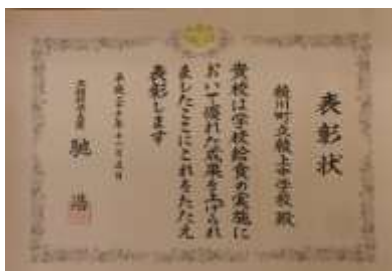 表彰状
綾川町立綾上中学校 殿
貴校は学校給食の実施に
おいて優れた成果を上げられ
ましたここにこれをたたえ
表彰します
平成二十七年十一月五日
文部科学大臣 馳 浩